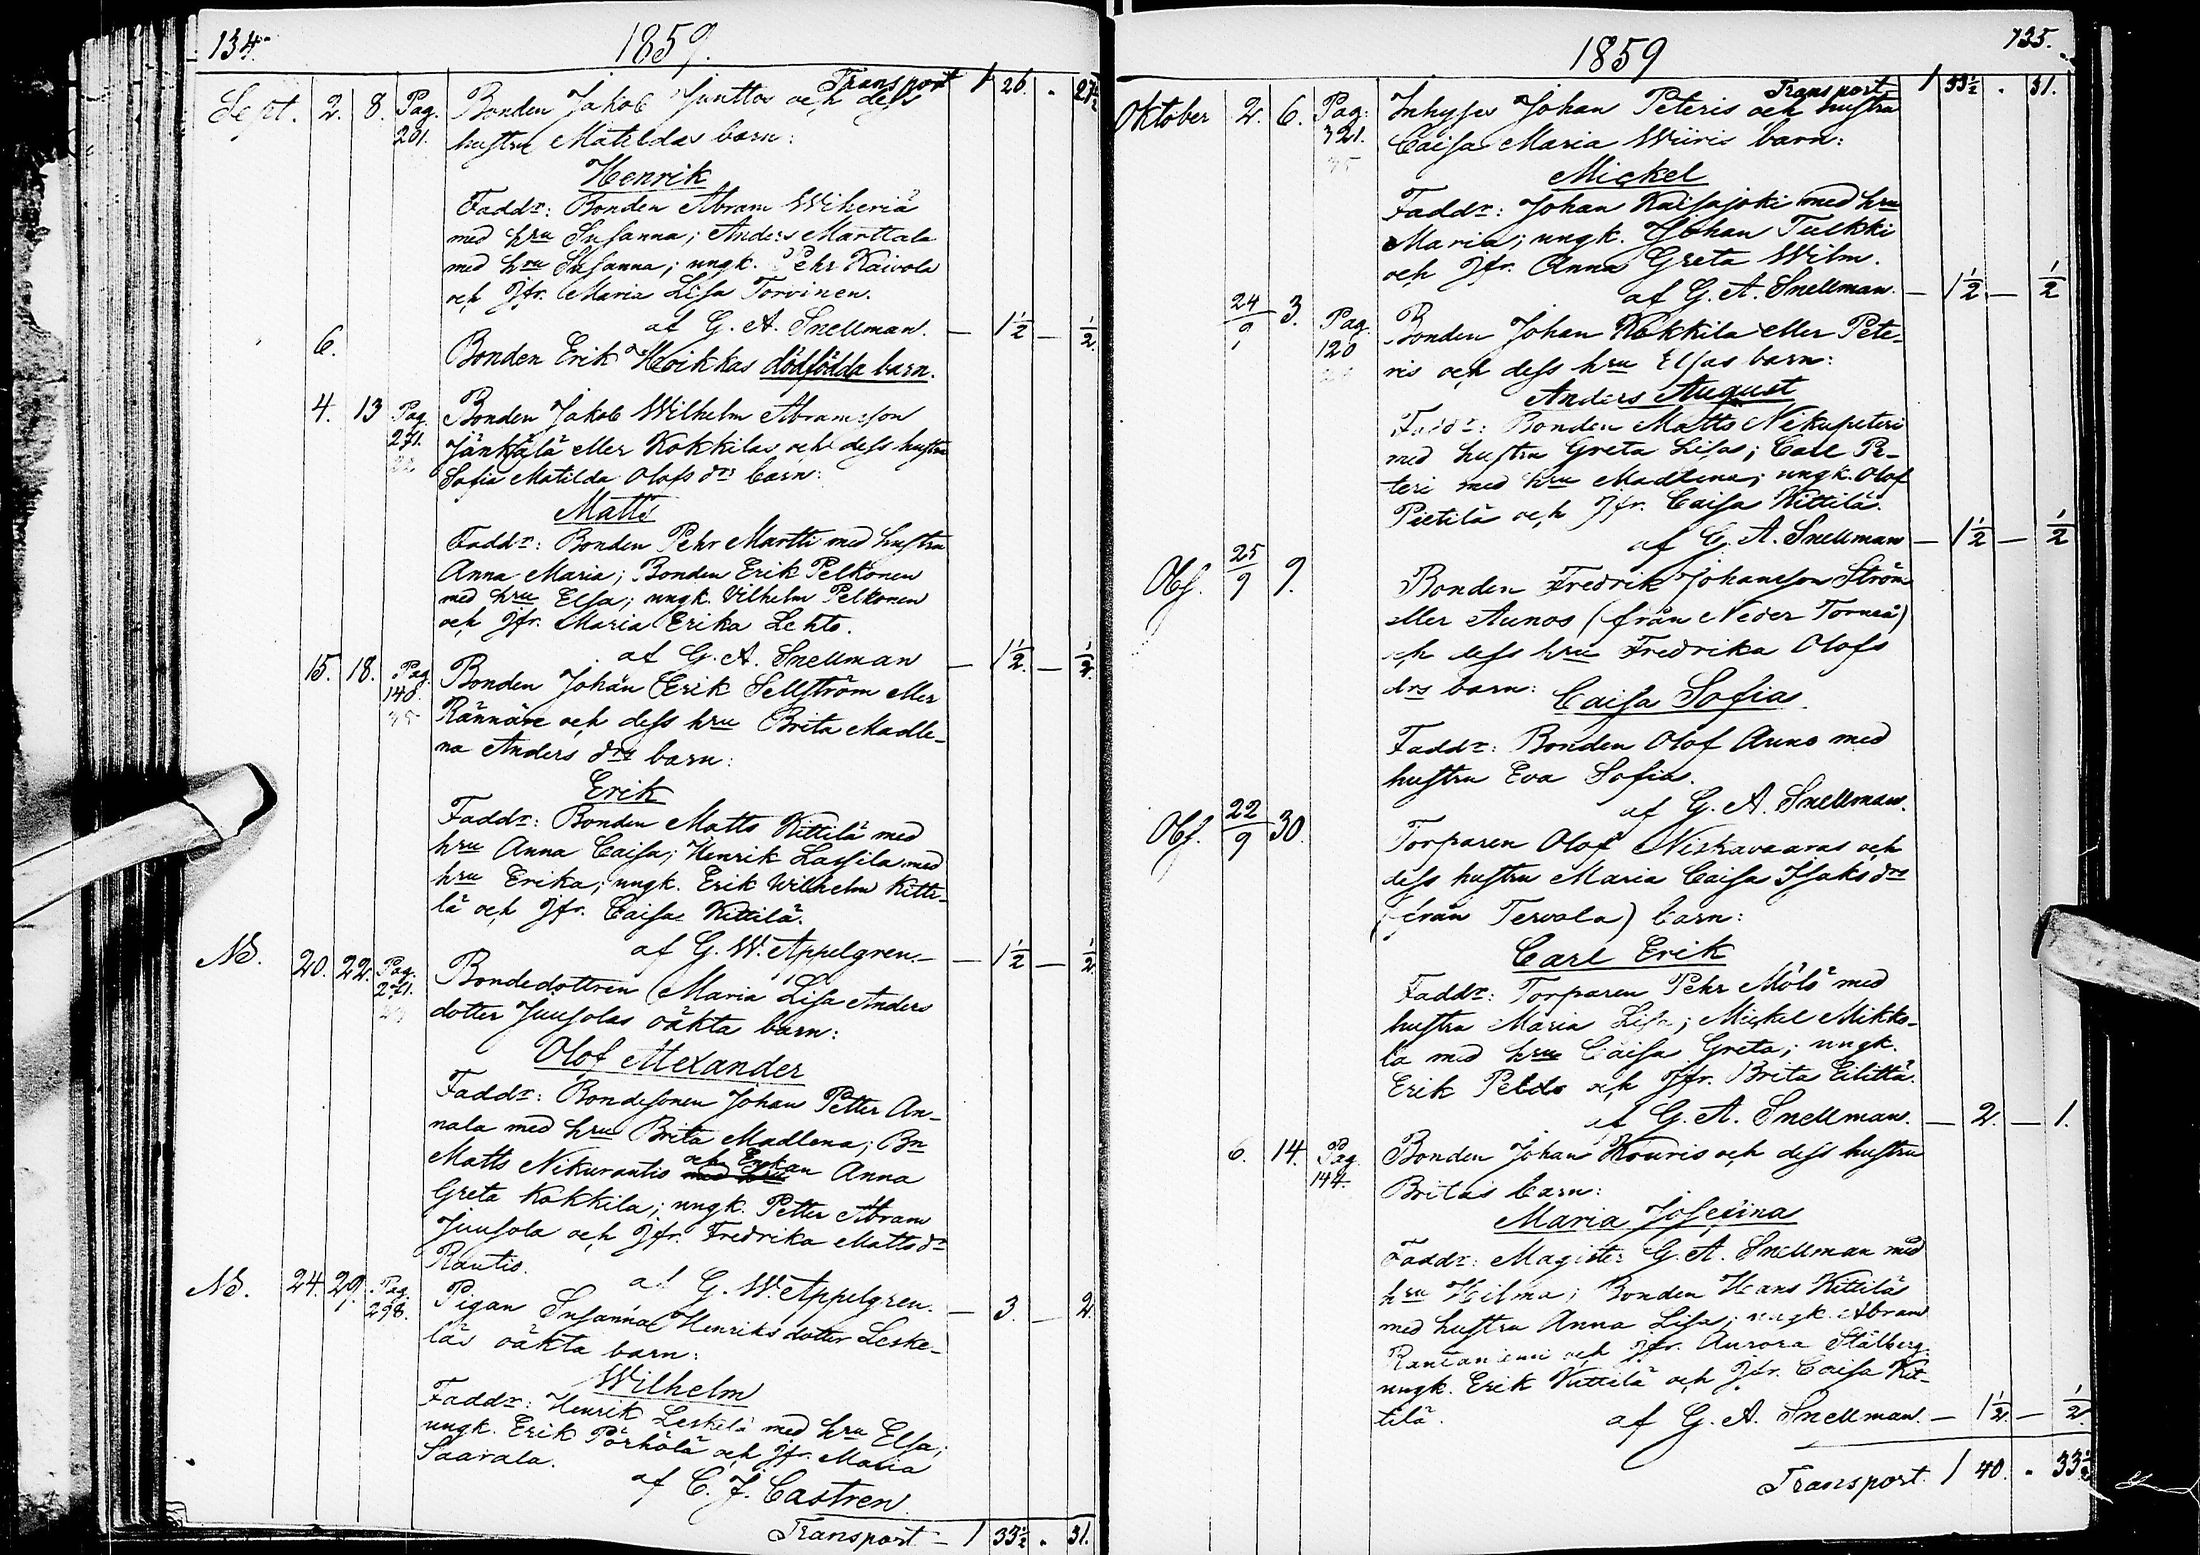 134.
1859.
Transport 1 26. . 27½
Sept. 2. 8. Pag. 201. Bonden Jakob Junttos och dess
hustru Matildas barn:
Henrik
Faddr: Bonden Abram Wiheriä
med hru Susanna; Anders Marttala
med hru Susanna; ungk. Pehr Kaivola
och Jfr. Maria Lisa Torvinen.
af G. A. Snellman. — 1½ — ½.
6. Bonden Erik Hoikkas dödfödda barn.
4. 13 Pag. 271. Bonden Jakob Wilhelm Abramsson
Jänkälä eller Kokkilas och dess hustru
Sofia Matilda Olofs drs barn:
Matts
Faddr: Bonden Pehr Martti med hustru
Anna Maria; Bonden Erik Pelkonen
med hru Elsa; ungk. Vilhelm Pelkonen
och Jfr. Maria Erika Lehto.
af G. A. Snellman — 1½ — ½.
15. 18. Pag. 148 35 Bonden Johan Erik Sellström eller
Rännäre och dess hru Brita Madle-
na Anders drs barn:
Erik
Faddr: Bonden Matts Kittilä med
hru Anna Caisa; Henrik Lassila med
hru Erika; ungk. Erik Wilhelm Kitti-
lä och Jfr. Caisa Kittilä.
af G. W. Appelgren. — 1½ — ½.
NB. 20. 22. Pag. 271. Bondedottren Maria Lisa Anders
dotter Juusolas oäkta barn:
Olof Alexander
Faddr: Bondesonen Johan Petter An-
nala med hru Brita Madlena; Bn
Matts Nikurautio med hru och Enkan Anna
Greta Kokkila; ungk. Petter Abram
Juusola och Jfr. Fredrika Matts dr
Rautio.
af G. W. Appelgren. — 3. — 2.
NB. 24. 29. Pag. 298. Pigan Susanna Henriksdotter Leske-
läs oäkta barn:
Wilhelm
Faddr: Henrik Leskelä med hru Elsa;
ungk. Erik Pörhölä och Jfr. Maria
Saarala.
af C. J. Castren
Transport — 1 33½ . 31.
1859
135.
Transport 1 33½ . 31.
Oktober 2. 6. Pag. 321. 35 Inhyses Johan Peteris och hustru
Caisa Maria Wiiris barn:
Mickel
Faddr: Johan Kaisajoki med hru
Maria; ungk. Johan Tulkki
och Jfr. Anna Greta Wilm.
af G. A. Snellman. — 1½ — ½
24/9 3. Pag. 120 Bonden Johan Kokkila eller Pete-
ris och dess hru Elsas barn:
Anders August
Faddr: Bonden Matts Nikupeteri
med hustru Greta Lisa; Carl Pe-
teri med hru Madlena; ungk. Olof
Pietilä och Jfr. Caisa Kittilä.
af G. A. Snellman — 1½ — ½
Obs. 25/9 9. Bonden Fredrik Johansson Ström
eller Aunos (från Neder Torneå)
och dess hru Fredrika Olofs
drs barn: Caisa Sofia.
Faddr: Bonden Olof Auno med
hustru Eva Sofia.
af G. A. Snellman.
Obs. 22/9 30. Torparen Olof Niskavaaras och
dess hustru Maria Caisa Isaks drs
(från Tervola) barn:
Carl Erik
Faddr: Torparen Pehr Mölö med
hustru Maria Lisa; Mickel Mikko-
la med hru Caisa Greta; ungk.
Erik Peldo och Jfr. Brita Eilittä.
af G. A. Snellman. — 2. — 1.
6. 14. Pag. 144. Bonden Johan Kouris och dess hustru
Britas barn:
Maria Josefina
Faddr: Magister G. A. Snellman med
hru Hilma; Bonden Hans Kittilä
med hustru Anna Lisa; ungk. Abram
Rantaniemi och Jfr. Aurora Stålberg.
ungk. Erik Kittilä och Jfr. Caisa Kit-
tilä. af G. A. Snellman. — 1½ — ½.
Transport. 1 40. . 33½